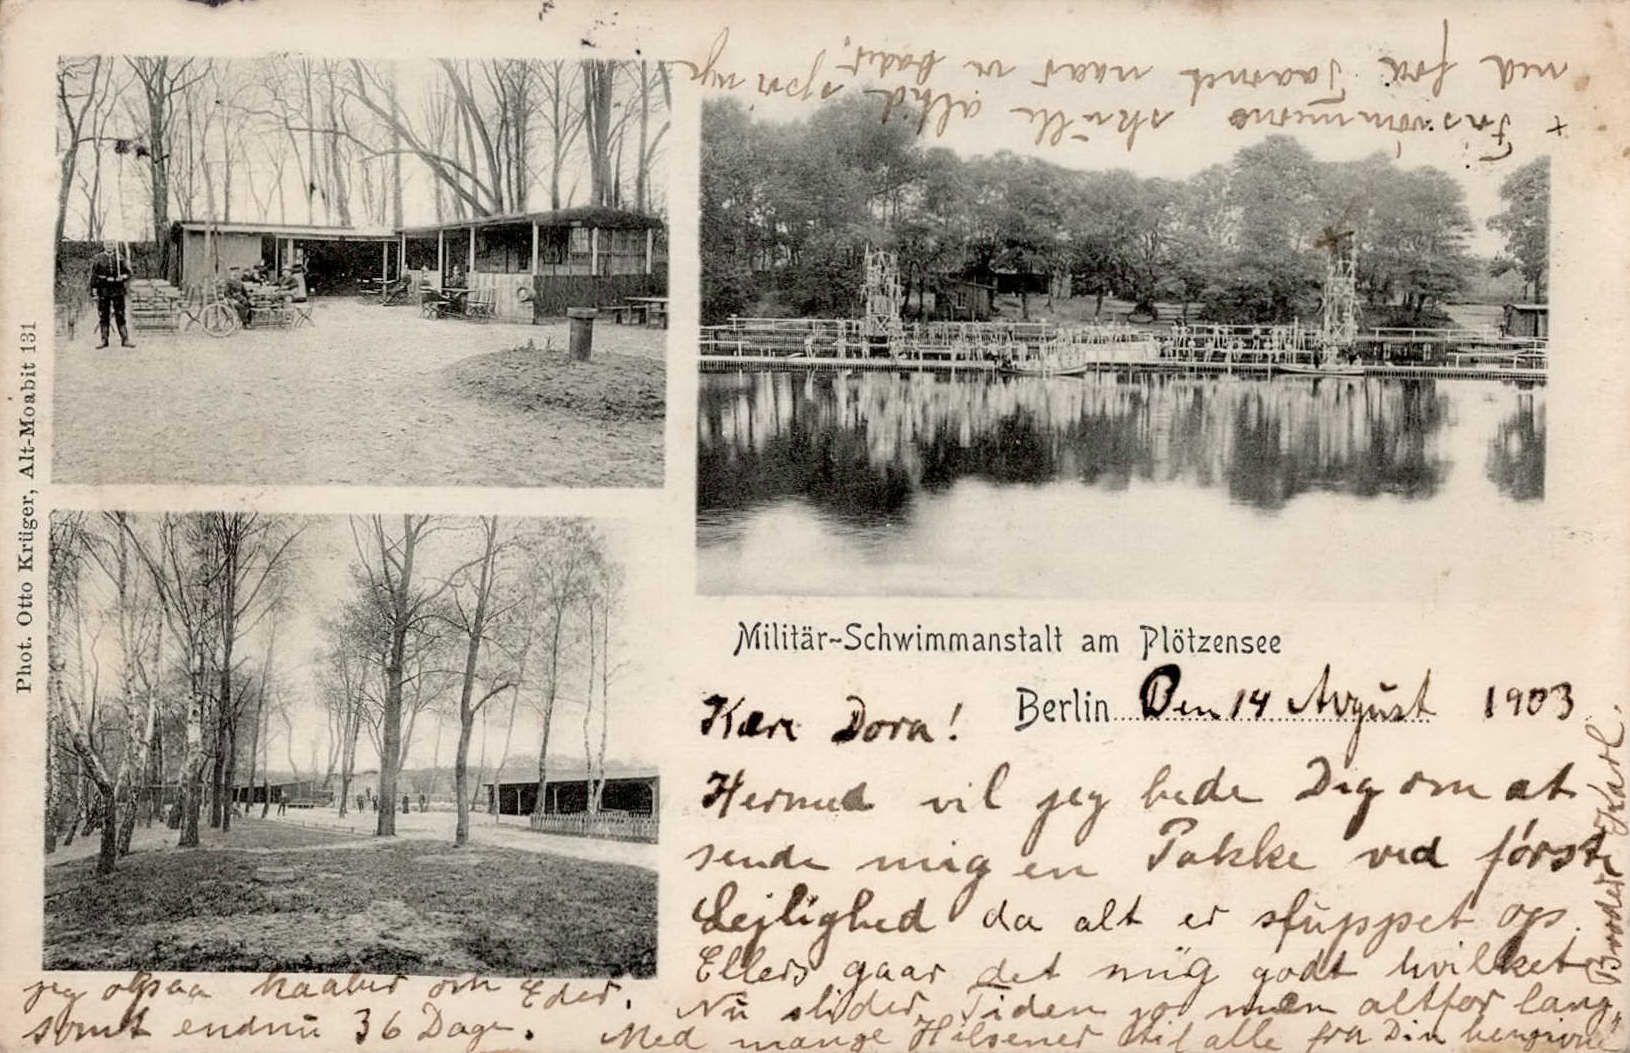 Phot. Otto Krüger, Alt-Moabit 131
Militär-Schwimmanstalt am Plötzensee
Berlin Den 14 August 1903
Kære Dora!
Hermed vil jeg bede Dig om at
sende mig en Pakke ved første
Lejlighed da alt er sluppet op.
Ellers gaar det mig godt hvilket
jeg ogsaa haaber om Eder. Nu slider Tiden jo men altfor lang,,
somt endnu 36 Dage. Med mange Hilsener til alle fra Din hengivne
Broder Karl.
+ Frisvømmerne skulle altid
ned fra Taarnet naar vi bader,